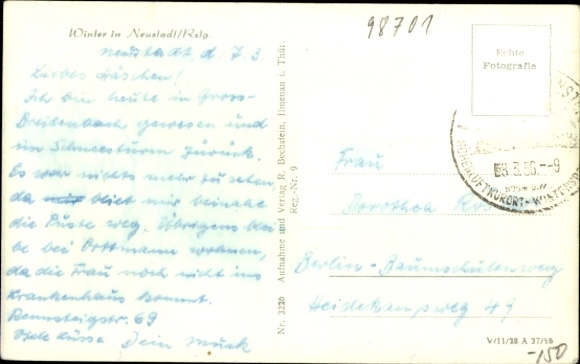 Winter in Neustadt/Rstg.
98701
Neustadt, d. 7.3
Liebes Häschen!
Ich bin heute in Gross-
Breitenbach gewesen und
im Schneesturm zurück.
Es war nichts mehr zu sehen,
da blieb mir beinahe
die Puste weg. Übrigens blei
be bei Ortmann wohnen,
da die Frau noch nicht ins
Krankenhaus kommt.
Rennsteigstr. 69
Viele Küsse Dein Muck
Nr. 3226 Aufnahme und Verlag R. Bechstein, Ilmenau i. Thür.
Reg.-Nr. 9
Echte
Fotografie
HÖHENLUFTKURORT - WINTERSP
-9
Frau
Dorothea
Berlin-Baumschulenweg
Heidekampweg 49
V/11/28 A 27/56
-150